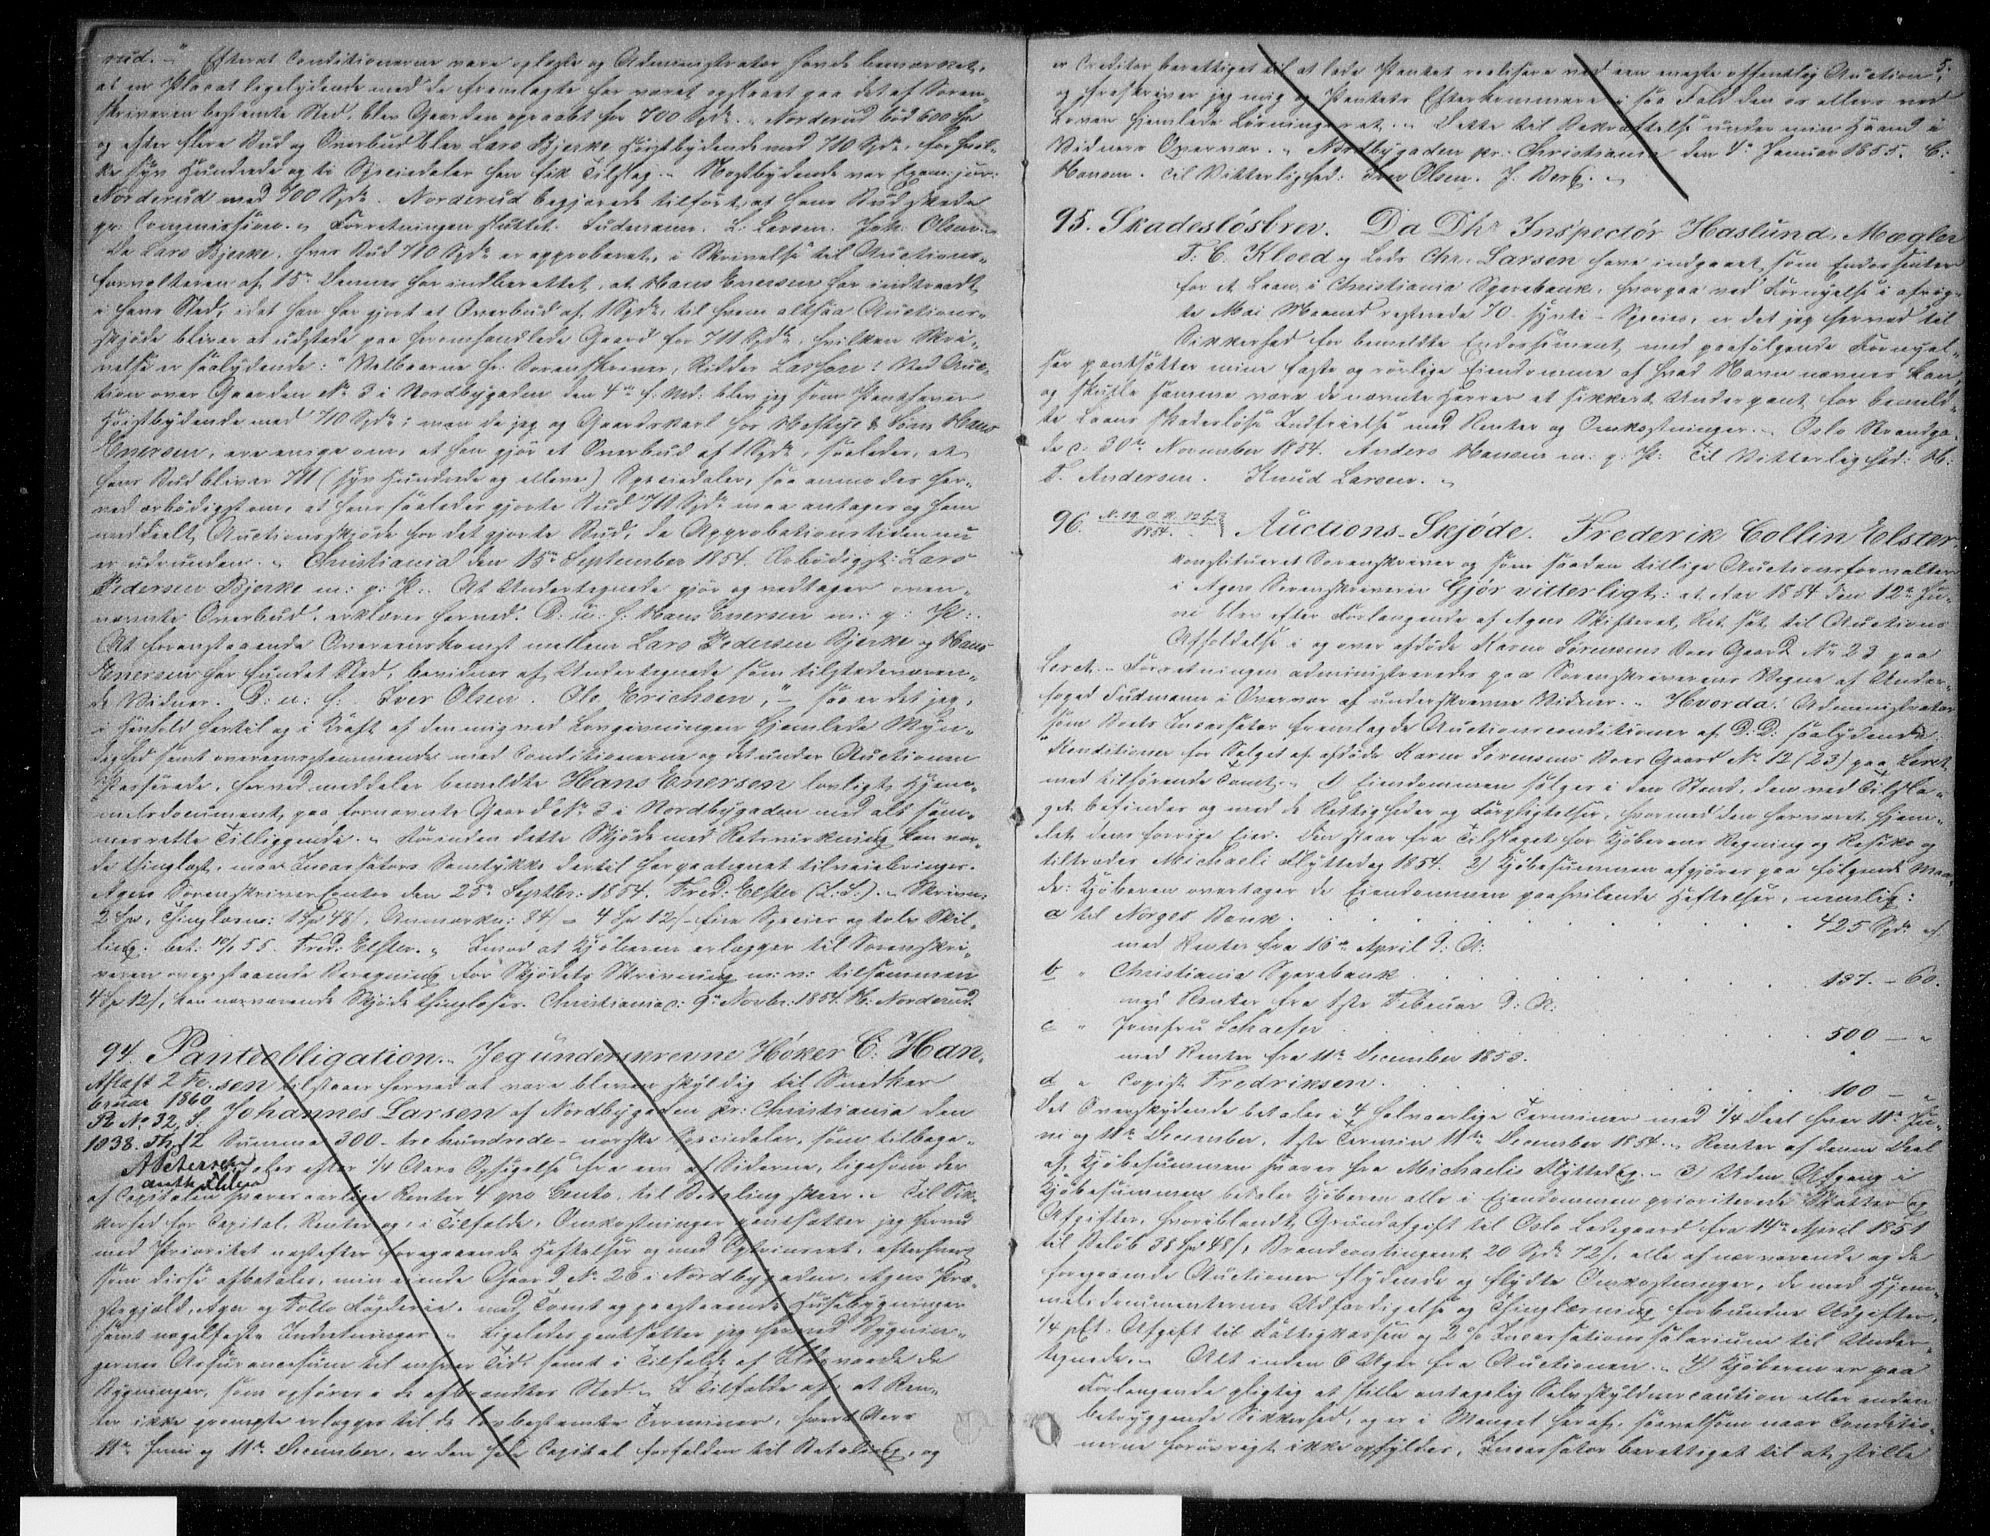 rud. " Efterat Conditionerne vare oplæste og Administrator havde bemærket,
at en Placat ligelydende med de fremlagte har været opslaaet paa det af Soren-
skriveren bestemte Sted, blev Gaarden opraabt for 700 Spd. Norderud bød 600 Spd
og efter flere Bud og Overbud blev Lars Bjerke høistbydende med 710 Spd, for hvil-
ke syv Hundrede og ti Speciedaler han fik Tilslag. Næstbydende var Exam: jur:
Norderud med 700 Spd. Norderud begjærede tilført, at hans Bud skede
pr. Commission. Forretningen sluttet. Tudemann. L. Larsen. Joh: Olsen.
Da Lars Bjerke, hvis Bud 710 Spd er approberet, i Skrivelse til Auctions-
forvalteren af 15de Dennes har indberettet, at Hans Enersen har indtraadt
i hans Sted, idet han har gjort et Overbud af 1 Spd, til hvem altsaa Auctions-
skjøde bliver at udstede paa heromhandlede Gaard for 711 Spd, hvilken Skri-
velse er saalydende: "Velbaarne Hr. Sorenskriver, Ridder Lasson! Ved Auc-
tion over Gaarden No 3 i Nordbygaden den 4de f. Md: blev jeg som Panthaver
Høistbydende med 710 Spd; men da jeg og Gaardskarl hos Heftye & Søn Hans
Enersen, ere enige om, at han gjør et Overbud af 1 Spd, saaledes, at
hans Bud bliver 711 (syv Hundrede og elleve) Speciedaler, saa anmodes her-
ved ærbødigst om, at hans saaledes gjorte Bud 711 Spd maa antages og ham
meddeelt Auctionsskjøde for det gjorte Bud, da Approbationstiden nu
er udrunden. Christiania den 15de September 1854. Ærbødigst: Lars
Pedersen Bjerke m: p: P:. At Undertegnede gjør og vedtager oven-
nævnte Overbud, erklæres herved. D: u: s: Hans Enersen m: p: P:.
At foranstaaende Overeenskomst mellem Lars Pedersen Bjerke og Hans
Enersen har fundet Sted, bevidnes af Undertegnede som tilstedeværen-
de Vidner. D: u: s:. Iver Olsen. Ole Erichsen," – saa er det jeg,
i Henhold hertil og i Kraft af den mig ved Lovgivningen hjemlede Myn-
dighed samt overeensstemmende med Conditionerne og det under Auctionen
Passerede, herved meddeler bemeldte Hans Enersen lovligt Hjem-
melsdocument paa fornævnte Gaard No 3 i Nordbygaden med alt sam-
mes rette Tilliggende. Førinden dette Skjøde med Retsvirkning kan vor-
de thinglæst, maa Incassators Samtykke dertil herpaategnet tilveiebringes.
Agers SorenskriverContor den 25de Septbr: 1854. Fred: Elster (L: S:). Skrivn:
2 Sp, Thinglæsn: 1 Sp 48 s, Anmærkn: 84 s – 4 Sp 12 s – fire Species og tolv Skil-
ling. bet: 10/1 55. Fred: Elster. Imod at Kjøberen erlægger til Sorenskri-
veren ovenstaaende Beregning for Skjødets Skrivning m: v: tilsammen
4 Sp 12 s, kan nærværende Skjøde thinglæses. Christiania d: 9de Novbr: 1854. H: Norderud.
94. Pantobligation. Jeg underskrevne Høker C: Han-
Aflæst 2 Fe- sen tilstaaer herved at være bleven skyldig til Snedker
bruar 1860
Pb No 32, S. Johannes Larsen af Nordbygaden pr: Christiania den
1038. Th. 12 Summa 300 – tre hundrede – norske Speciedaler, som tilbage-
A Petersen betales efter 1/4 Aars Opsigelse fra een af Siderne, ligesom der
auth
af Capitalen svares aarlige Renter 4 pro Cento, til Betaling skeer. Til Sik-
kerhed for Capital, Renter og, i Tilfælde, Omkostninger pantsætter jeg herved
med Prioritet næstefter foregaaende Heftelser og med Optrinsret, eftersom
som disse afbetales, min eiende Gaard No 26 i Nordbygaden, Agers Præ-
stegjæld, Ager og Follo Fogderie, med Tomt og paastaaende Huusebygninger
samt nagelfaste Indretninger. Ligeledes pantsætter jeg herved Bygnin-
gernes Assurancesum til enhver Tid, samt i Tilfælde af Ildsvaade de
Bygninger, som opføres i de afbrændtes Sted. I Tilfælde af, at Ren-
ter ikke prompte erlægges til de lovbestemte Terminer, hvert Aars
11te Juni og 11te December, er den hele Capital forfalden til Betaling, og
5.
er Creditor berettiget til at lade Pantet realisere ved een eneste offentlig Auction,
og fraskriver jeg mig og Pantets Efterkommere i saa Fald den os ellers ved
Loven hjemlede Løsningsret. Dette til Bekræftelse under min Haand i
Vidners Overvær. Nordbygaden pr: Christiania den 4de Januar 1855. C:
Hansen. Til Vitterlighed: Iver Olsen. J. Berg.
95. Skadesløsbrev. Da Dhr Inspectør Haslund, Mægler
T. C. Kloed og Lods Chr. Larsen have indgaaet som Endossenter
for et Laan i Christiania Sparebank, hvorpaa ved Fornyelse i afvig-
te Mai Maaned resterede 70 – sytti – Species, er det jeg herved til
Sikkerhed for bemeldte Endossement med paafølgende Fornyel-
ser pantsætter mine faste og rørlige Eiendomme af hvad Navn nævnes kan,
og skulle samme være de nævnte Herrer et sikkert Underpant for bemeld-
te Laans skadesløse Indfrielse med Renter og Omkostninger. Oslo Strandga-
de d: 30te November 1854. Anders Hansen m: p: P: Til Vitterlighed: H:
T. Andersen. Knud Larsen.
96. N. 19. A. R. 12 s
1854. Auctions-Skjøde. Frederik Collin Elster
konstitueret Sorenskriver og som saadan tillige Auctionsforvalter
i Agers Sorenskriverie Gjør vitterligt: at Aar 1854 den 12te Ju-
ni blev efter Forlangende af Agers Skifteret Ret sat til Auctions
Afholdelse i og over afdøde Karen Sørensens Boes Gaard No 23 paa
Leret. Forretningen administreredes paa Sorenskriverens Vegne af Under-
foged Tudemann i Overvær af underskrevne Vidner. Hvorda: Administrator
som Boets Incassator fremlagde Auctionsconditioner af D: D: saalydende:
"Konditioner for Salget af afdøde Karen Sørensens Boes Gaard No 12 (23) paa Leret
med tilhørende Tomt. 1) Eiendommen sælges i den Stand, den ved Tilsla-
get befindes og med de Rettigheder og Forpligtelser, hvormed den har været hjem-
let dens forrige Eier. Den staar fra Tilslaget for Kjøberens Regning og Resiko og
tiltrædes Michaeli Flyttedag 1854. 2) Kjøbesummen afgjøres paa følgende Maa-
de: Kjøberen overtager de Eiendommen paahvilende Heftelser, nemlig:
a til Norges Bank . . . . . 425 Spd
med Renter fra 16de April d: A:
b " Christiania Sparebank . . . . . 137. – 60.
med Renter fra 1ste Februar d: A:
c " Jomfru Schaefer . . . . . 500 – "
med Renter fra 11te December 1853.
d " Copist Fredriksen . . . . . 100 – "
Det Overskydende betales i 4 halvaarlige Terminer med 1/4 Deel hver 11te Ju-
ni og 11te December, 1ste Termin 11te December 1854. Renter af denne Deel
af Kjøbesummen svares fra Michaelis Flyttedag. 3) Uden Afgang i
Kjøbesummen betaler Kjøberen alle i Eiendommen prioriterede Skatter og
Afgifter, hvoriblandt Grundafgift til Oslo Ladegaard fra 14de April 1851
til Beløb 38 Sp 48 s, Brandcontingent 20 Spd 72 s, alle af nærværende og de
foregaaende Auctioner flydende og flydte Omkostninger, de med Hjem-
melsdocumenternes Udfærdigelse og Thinglæsning forbundne Udgifter,
1/4 pCt. Afgift til Fattigkassen og 2 % Incassationssalarium til Under-
tegnede. Alt inden 6 Uger fra Auctionen. 4) Kjøberen er paa
Forlangende pligtig at stille antagelig Selvskyldnercaution eller anden
betryggende Sikkerhed, og er i Mangel heraf, saavelsom naar Conditio-
nerne forøvrigt ikke opfyldes, Incassator berettiget til at stille